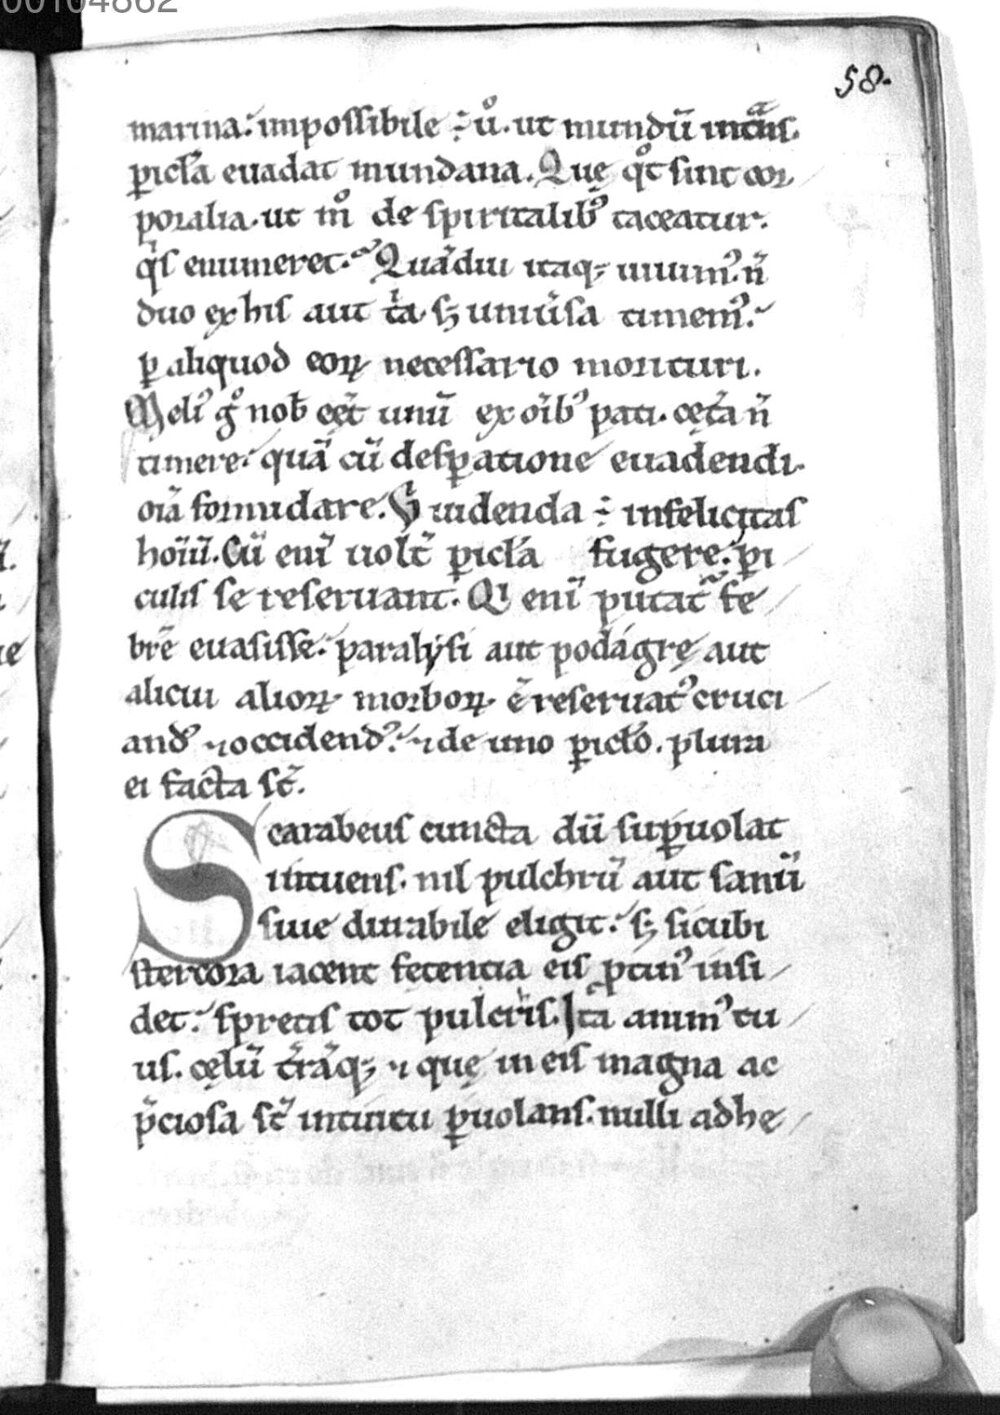 00104862
58.
marina. impossibile ÷ uͦ. ut mundū intͣns.
ꝑicl̄a euadat mundana. Quę qͦt sint cor
poralia. ut mͦ de spiritalibꝰ taceatur.
qͥs enumeret. Quādiu itaqꝫ uiuimꝰ. n̄
duo ex his aut tͥa. sꝫ uniūsa timemꝰ.
ꝑ aliquod eoꝝ necessario morituri.
Meliꝰ gͦ nob̄ eēt unū ex oīibꝰ pati. cęt̄a n̄
timere. quā cū desꝑatione euadendi.
oīa formidare. Sꝫ uidenda ÷ infelicitas
hoīū. Cū enī uolt̄ ꝑicl̄a fugere. ꝑi
culis se reseruant. Qi enī putat se fe
brē euasisse. paralẏsi aut podágrę aut
alicui alioꝝ morboꝝ ē reseruatꝰ cruci
andꝰ ⁊ occidendꝰ. ⁊ de uno ꝑicl̄o. plura
ei facta st̄.
Scarabeus cuncta dū suꝑuolat
intuens. nil pulchrū aut sanū
siue durabile eligit. sꝫ sicubi
stercora iacent fetentia eis ꝓtinꝰ insi
det. spretis tot pulcris. Ita animꝰ tu
us. cęlū t̄rāqꝫ ⁊ quę in eis magna ac
p̄ciosa st̄ intuitu ꝑuolans. nulli adhę